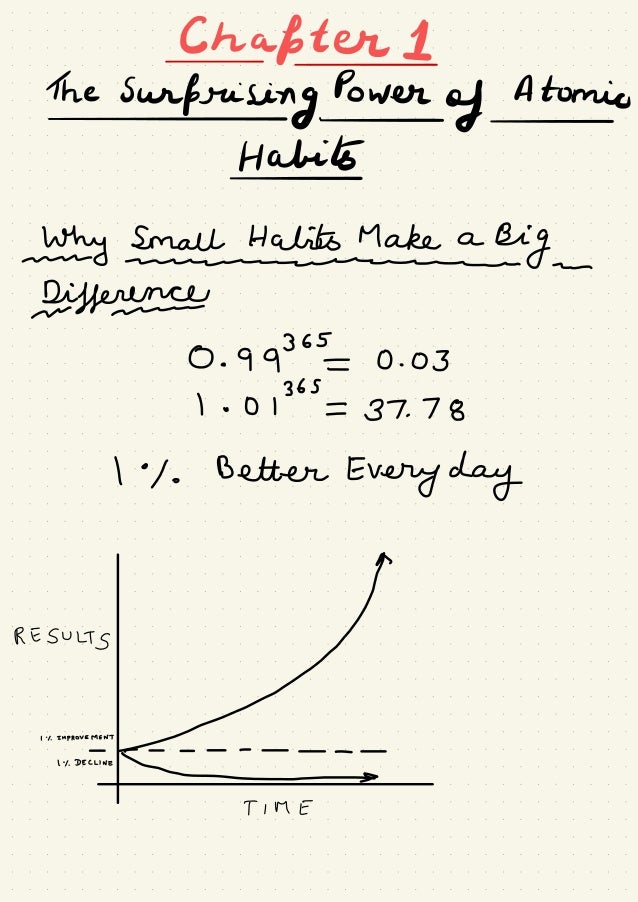 Chapter 1
The Surprising Power of Atomic
Habits
Why Small Habits Make a Big
Difference
0.99^365 = 0.03
1.01^365 = 37.78
1%. Better Everyday
RESULTS
1% IMPROVEMENT
1% DECLINE
TIME